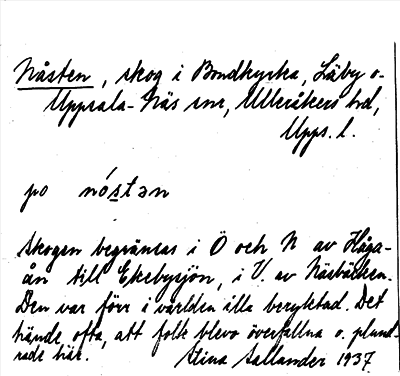 Nåsten, skog i Bondkyrka, Läby o.
Uppsala-Näs snr, Ulleråkers hd,
Upps. l.
po nóstən
Skogen begränsas i Ö och N av Håga-
ån till Ekebysjön, i V. av Näsbäcken.
Den var förr i världen illa beryktad. Det
hände ofta, att folk blevo överfallna o. plund-
rade här. Stina Sallander 1937.